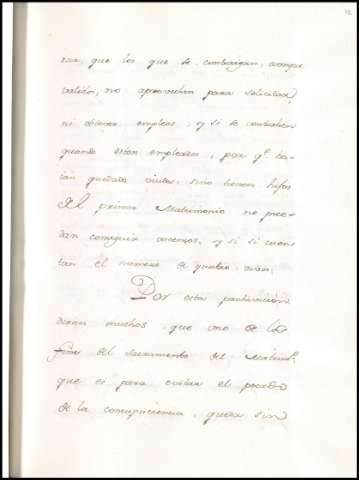 que los que se contraigan, aunque
validos, no aprovechen para solicitar,
ni obtener empleos; y si se contrahen
quando estan empleados, por q.e ha-
ian quedado viudos, sino tienen hijos
del primer Matrimonio no pue-
dan conseguir ascensos, y si si cuen-
tan el numero de quatro
Por estas
muchos, que uno de los
fines del Sacramento del Matrim.o
que es para evitar el pecado
de la concupiciencia, queda sin